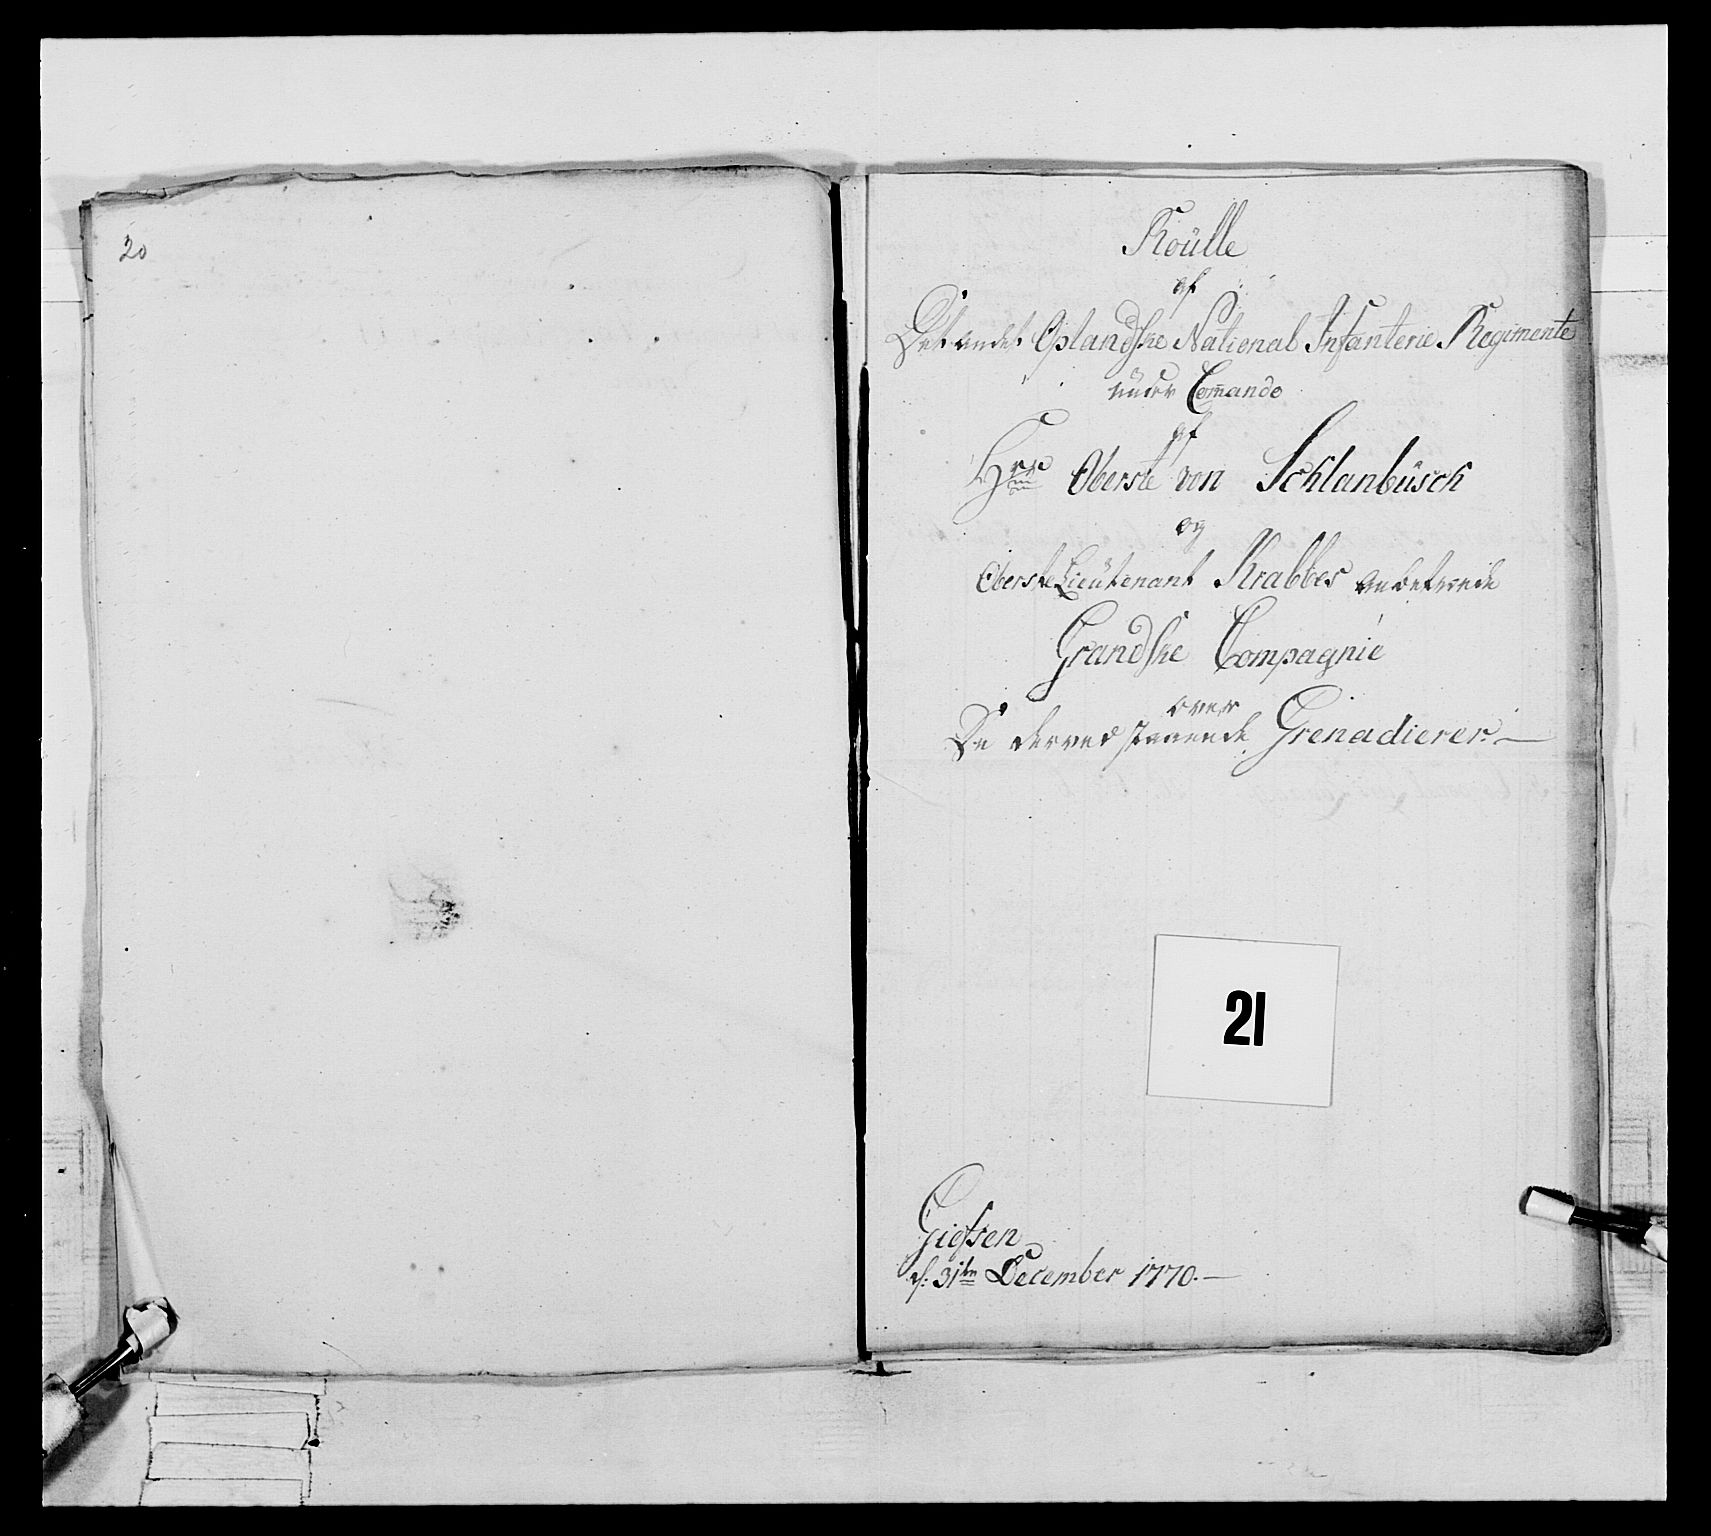 20
Roülle
af
Det andet Oplandske National Infanterie Regimente
ünder Com̄ando
af
Herr Oberste von Schlanbüsch
og
Oberste Lieütenant Krabbes anbetroede
Grandske Compagnie
over
De derved staaende Grenadierer.—
21
Giefsen
d: 31te December 1770.—